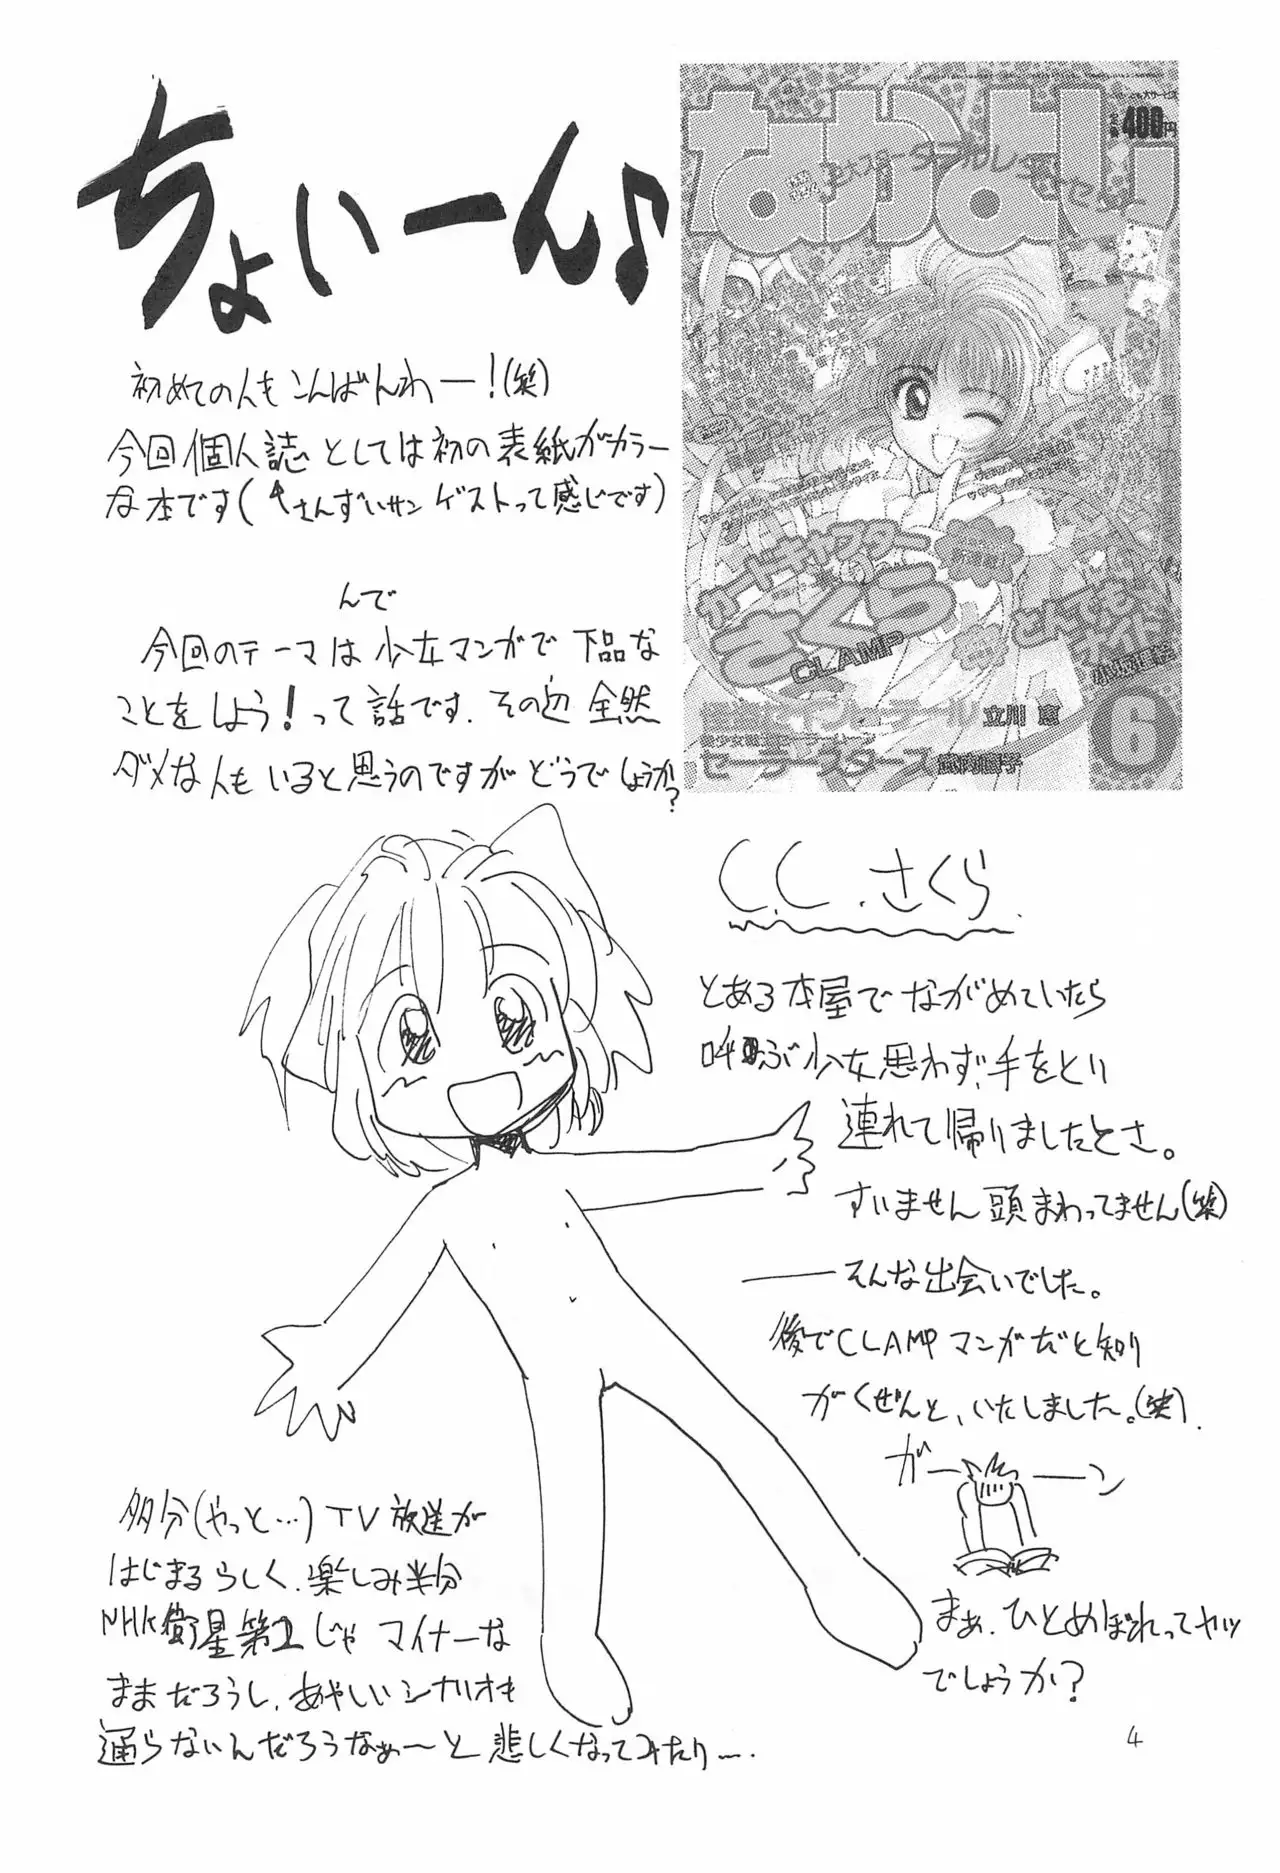 ちょいーん♪
初めての人もこんばんわー!(笑)
今回個人誌としては初の表紙がカラー
な本です(↑さんずいサン ゲストって感じです)
んで
今回のテーマは少女マンガで下品な
ことをしよう!って話です.その辺全然
ダメな人もいると思うのですがどうでしょうか?
なかよし
400円
カードキャプター
さくら
CLAMP
とんでもナイト
小坂理絵
立川 恵
セーラースターズ
6
C.C.さくら
とある本屋でながめていたら
呼ぶ少女思わず、手をとり
連れて帰りましたとさ。
すいません頭まわってません(笑)
――そんな出会いでした。
後でCLAMPマンガだと知り
がくぜんと、いたしました。(笑).
ガー――ン
まぁ.ひとめぼれってヤツ
でしょうか?
多分(やっと…)TV放送が
はじまるらしく.楽しみ半分
NHK衛星第2じゃマイナーな
ままだろうし.あやしいシナリオも
通らないんだろうなぁ〜と悲しくなってみたり….
4